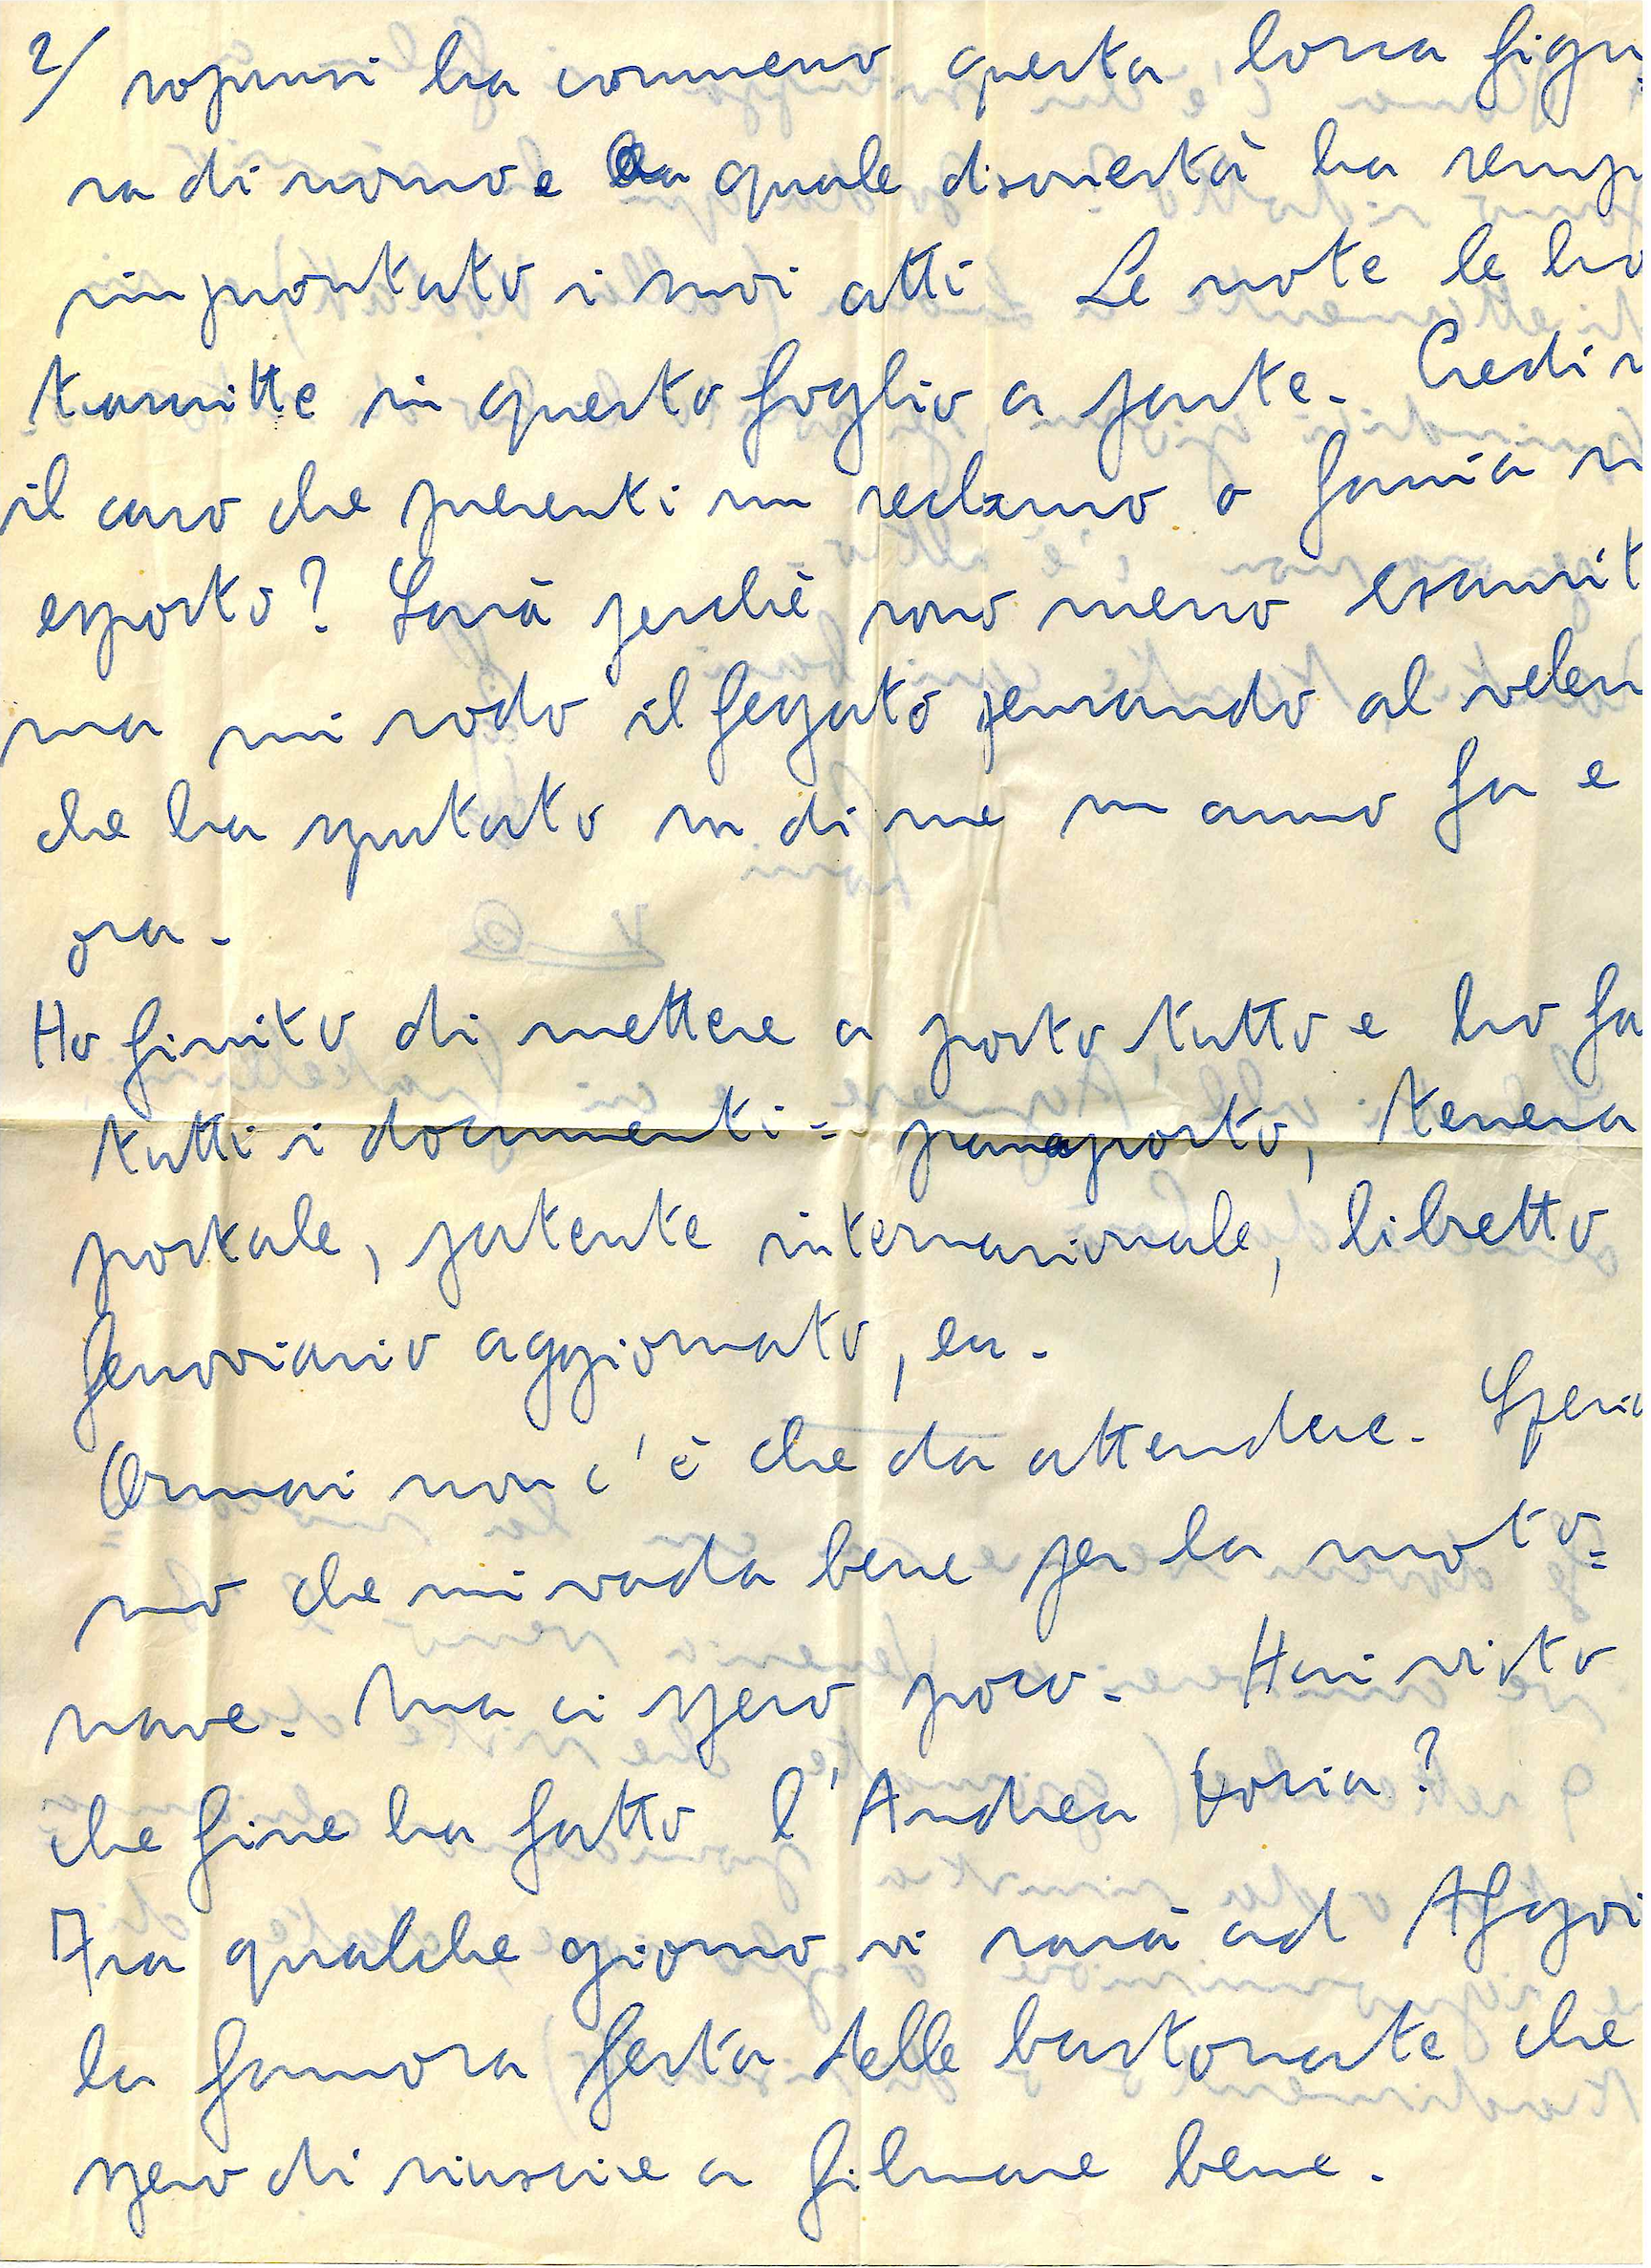 2/ soprusi ha commesso questa losca figu
ra di uomo e a quale disonestà ha semp
improntato i suoi atti Le note le ho
trascritte in questo foglio a parte. Credi s
il caso che presenti un reclamo o farà
esposto? Sarà perchè sono meno esaurit
ma mi rodo il fegato pensando al velen
che ha sputato su di me un anno fa e
ora.
Ho finito di mettere a posto tutto e ho fa
tutti i documenti = passaporto, tessera
postale, patente internazionale, libretto
ferroviario aggiornato, ecc.
Ormai non c'è che da attendere. Speria
mo che mi vada bene per la moto=
nave. Ma ci spero poco. Hai visto
che fine ha fatto l'Andrea Doria?
Fra qualche giorno vi sarà ad Afgoi
la famosa festa delle bastonate che
spero di riuscire a filmare bene.